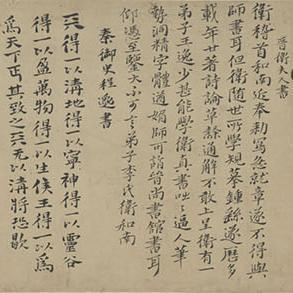 晉衛夫人書
衛稽首和南近奉勑寫急就章遂不得與
師書耳但衛随世所學規摹鍾繇遂歷多
載年廿著詩論草隸通解不敢上呈衛有一
弟子王逸少甚能學衛真書咄咄逼人筆
勢洞精字體遒媚師可詣晉尚書館書耳
仰馮至鑒大不可言弟子李氏衛和南
秦御史程邈書
天得一以清地得一以寧神得一以靈谷
得一以盈萬物得一以生侯王得一以爲
爲天下正其致之天无以清將恐歇